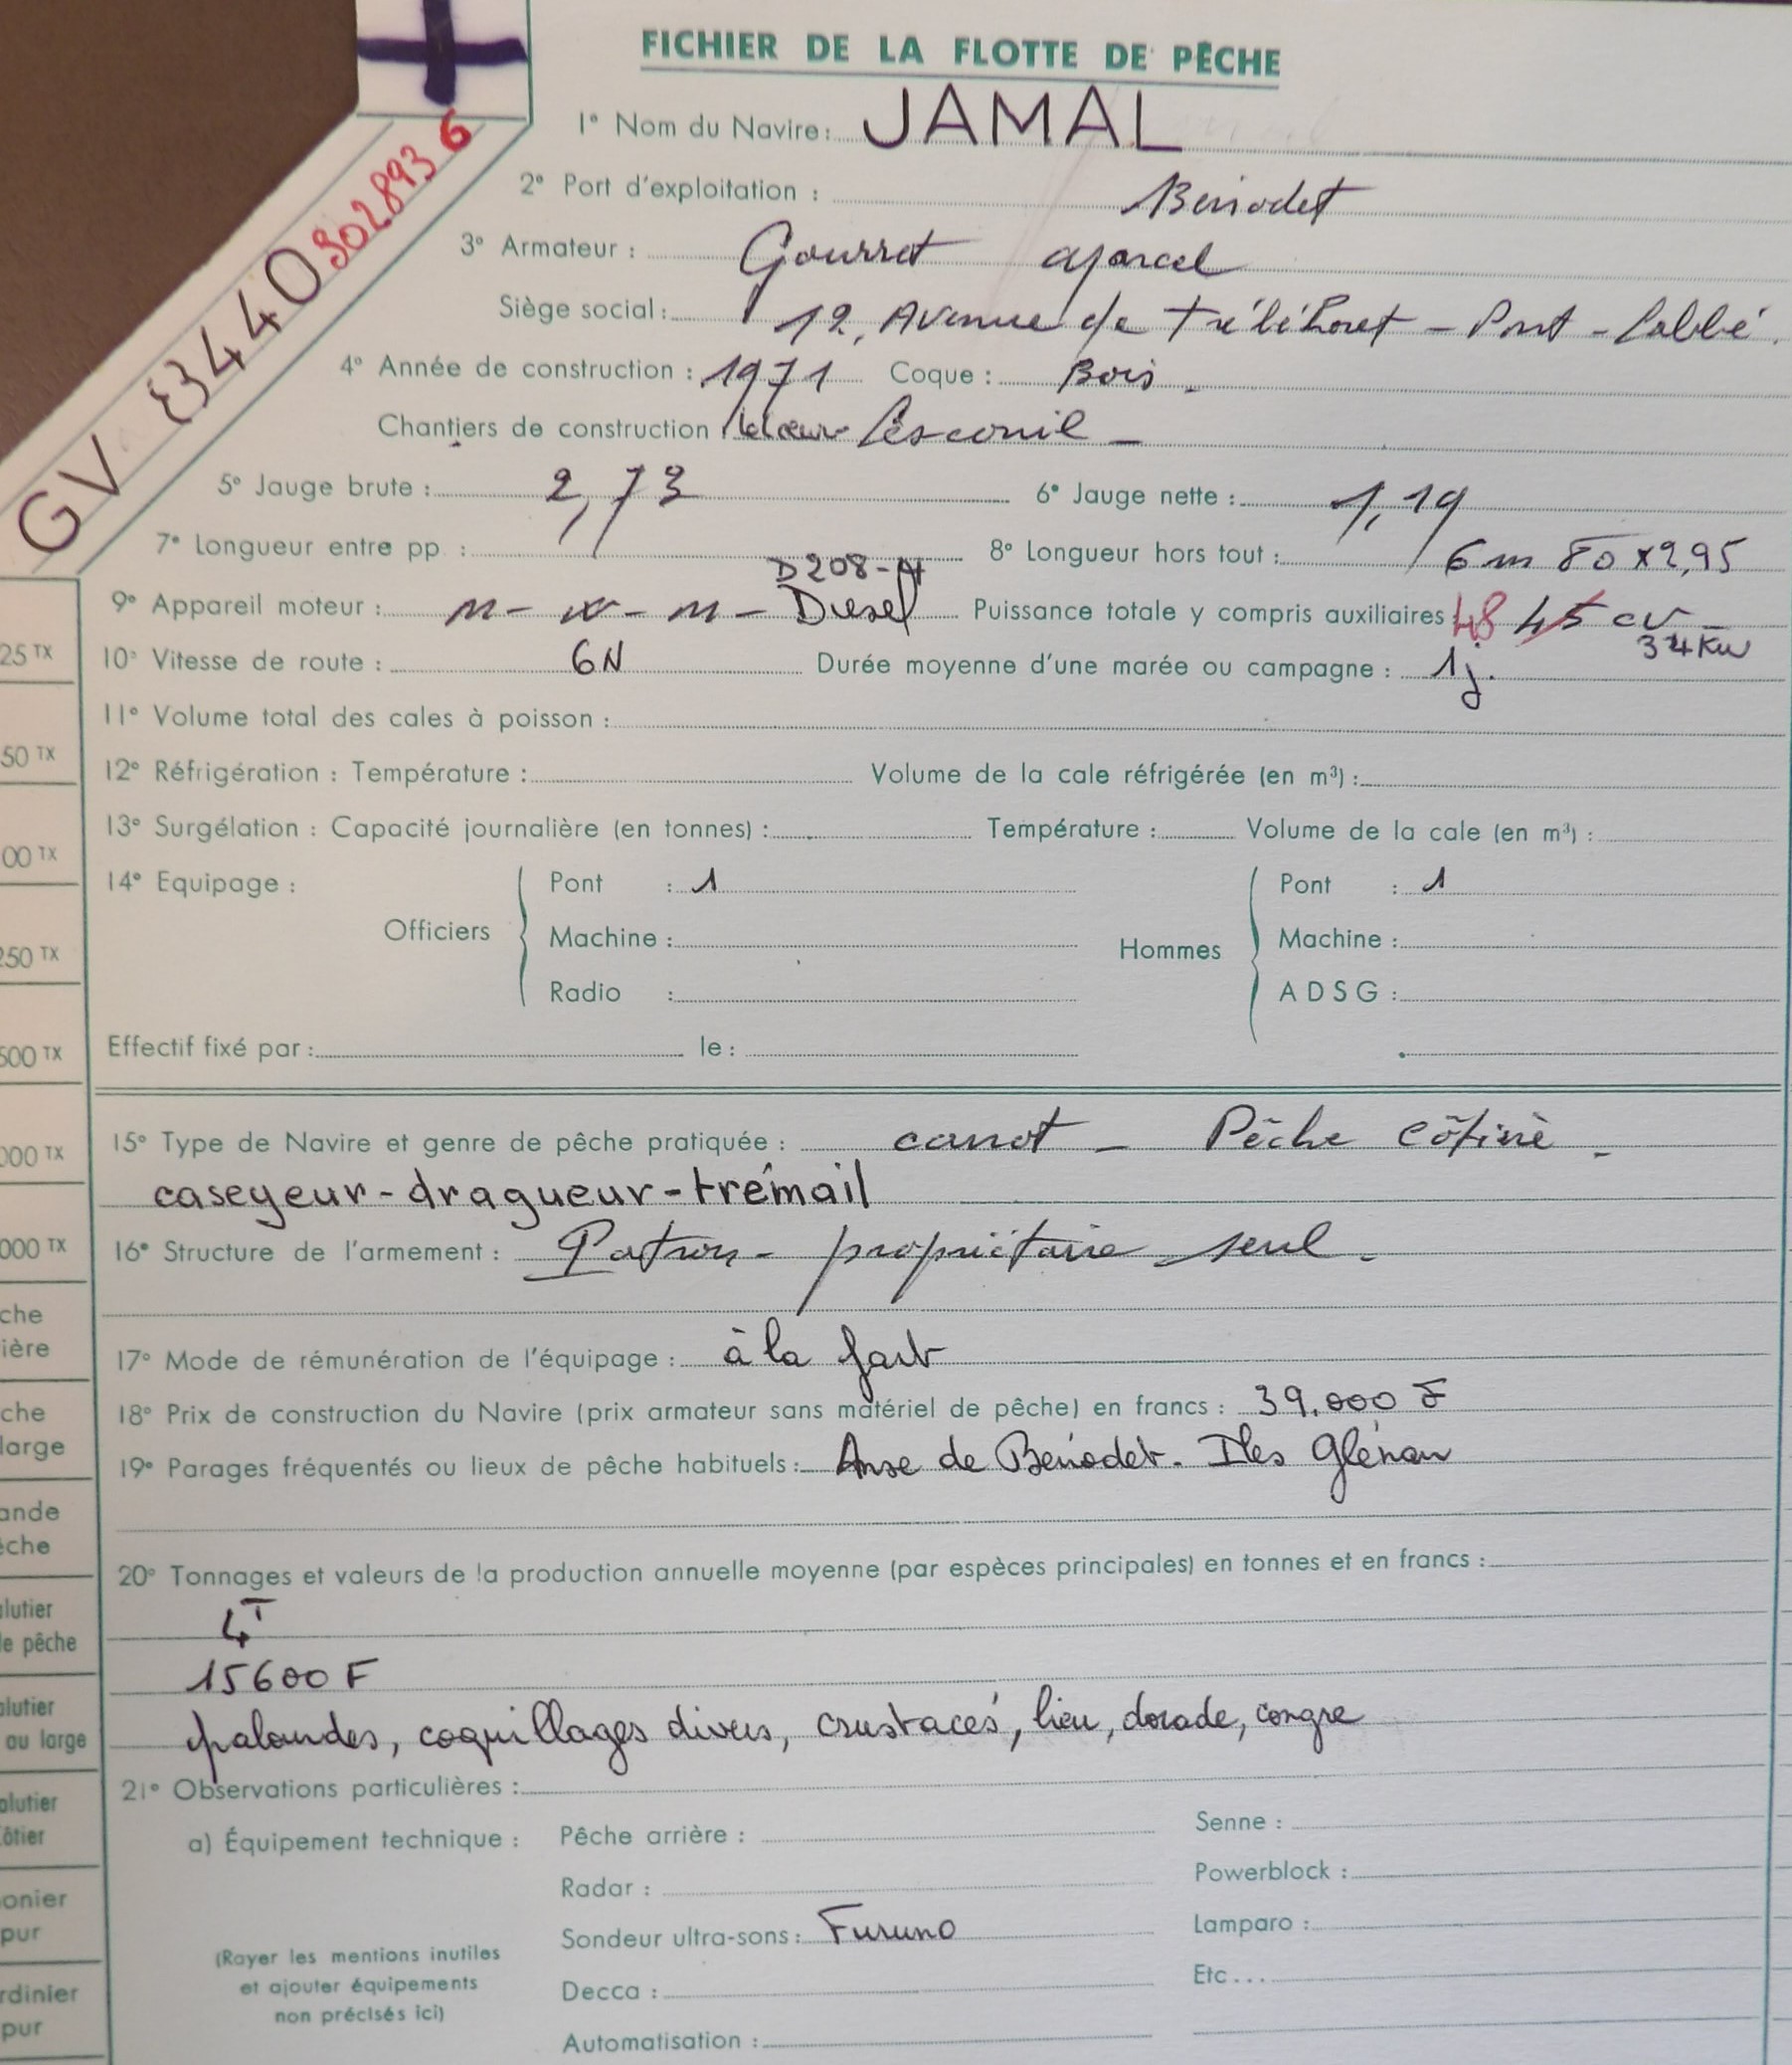 FICHIER DE LA FLOTTE DE PÊCHE
GV 3440 302893 6
1° Nom du Navire : JAMAL
2° Port d'exploitation : Bénodet
3° Armateur : Gourret Marcel
Siège social : 12, Avenue de Tréléhoret - Pont-Labbé.
4° Année de construction : 1971 Coque : Bois.
Chantiers de construction Lesconil -
5° Jauge brute : 2,73 6° Jauge nette : 1,19
7° Longueur entre pp : 8° Longueur hors tout : 6m 80 x 2,95
D208-
9° Appareil moteur : Diesel Puissance totale y compris auxiliaires 48 45 cv
34Kw
10° Vitesse de route : 6N Durée moyenne d'une marée ou campagne : 1j.
11° Volume total des cales à poisson :
12° Réfrigération : Température : Volume de la cale réfrigérée (en m³) :
13° Surgélation : Capacité journalière (en tonnes) : Température : Volume de la cale (en m³) :
14° Equipage :
Officiers Pont : 1 Hommes Pont : 1
Machine : Machine :
Radio : ADSG :
Effectif fixé par : le :
15° Type de Navire et genre de pêche pratiquée : canot - Pêche côtière.
caseyeur-dragueur-trémail
16° Structure de l'armement : Patron - propriétaire seul.
17° Mode de rémunération de l'équipage : à la part
18° Prix de construction du Navire (prix armateur sans matériel de pêche) en francs : 39.000 F
19° Parages fréquentés ou lieux de pêche habituels : Anse de Bénodet. Iles Glénan
20° Tonnages et valeurs de la production annuelle moyenne (par espèces principales) en tonnes et en francs :
4T
15600 F
palourdes, coquillages divers, crustacés, lieu, dorade, congre
21° Observations particulières :
a) Équipement technique : Pêche arrière : Senne :
Radar : Powerblock :
Sondeur ultra-sons : Furuno Lamparo :
(Rayer les mentions inutiles
et ajouter équipements
non précisés ici)
Decca : Etc...
Automatisation :
25 TX
50 TX
00 TX
250 TX
500 TX
000 TX
000 TX
che
ière
che
large
ande
êche
alutier
de pêche
alutier
au large
alutier
côtier
onier
pur
rdinier
pur